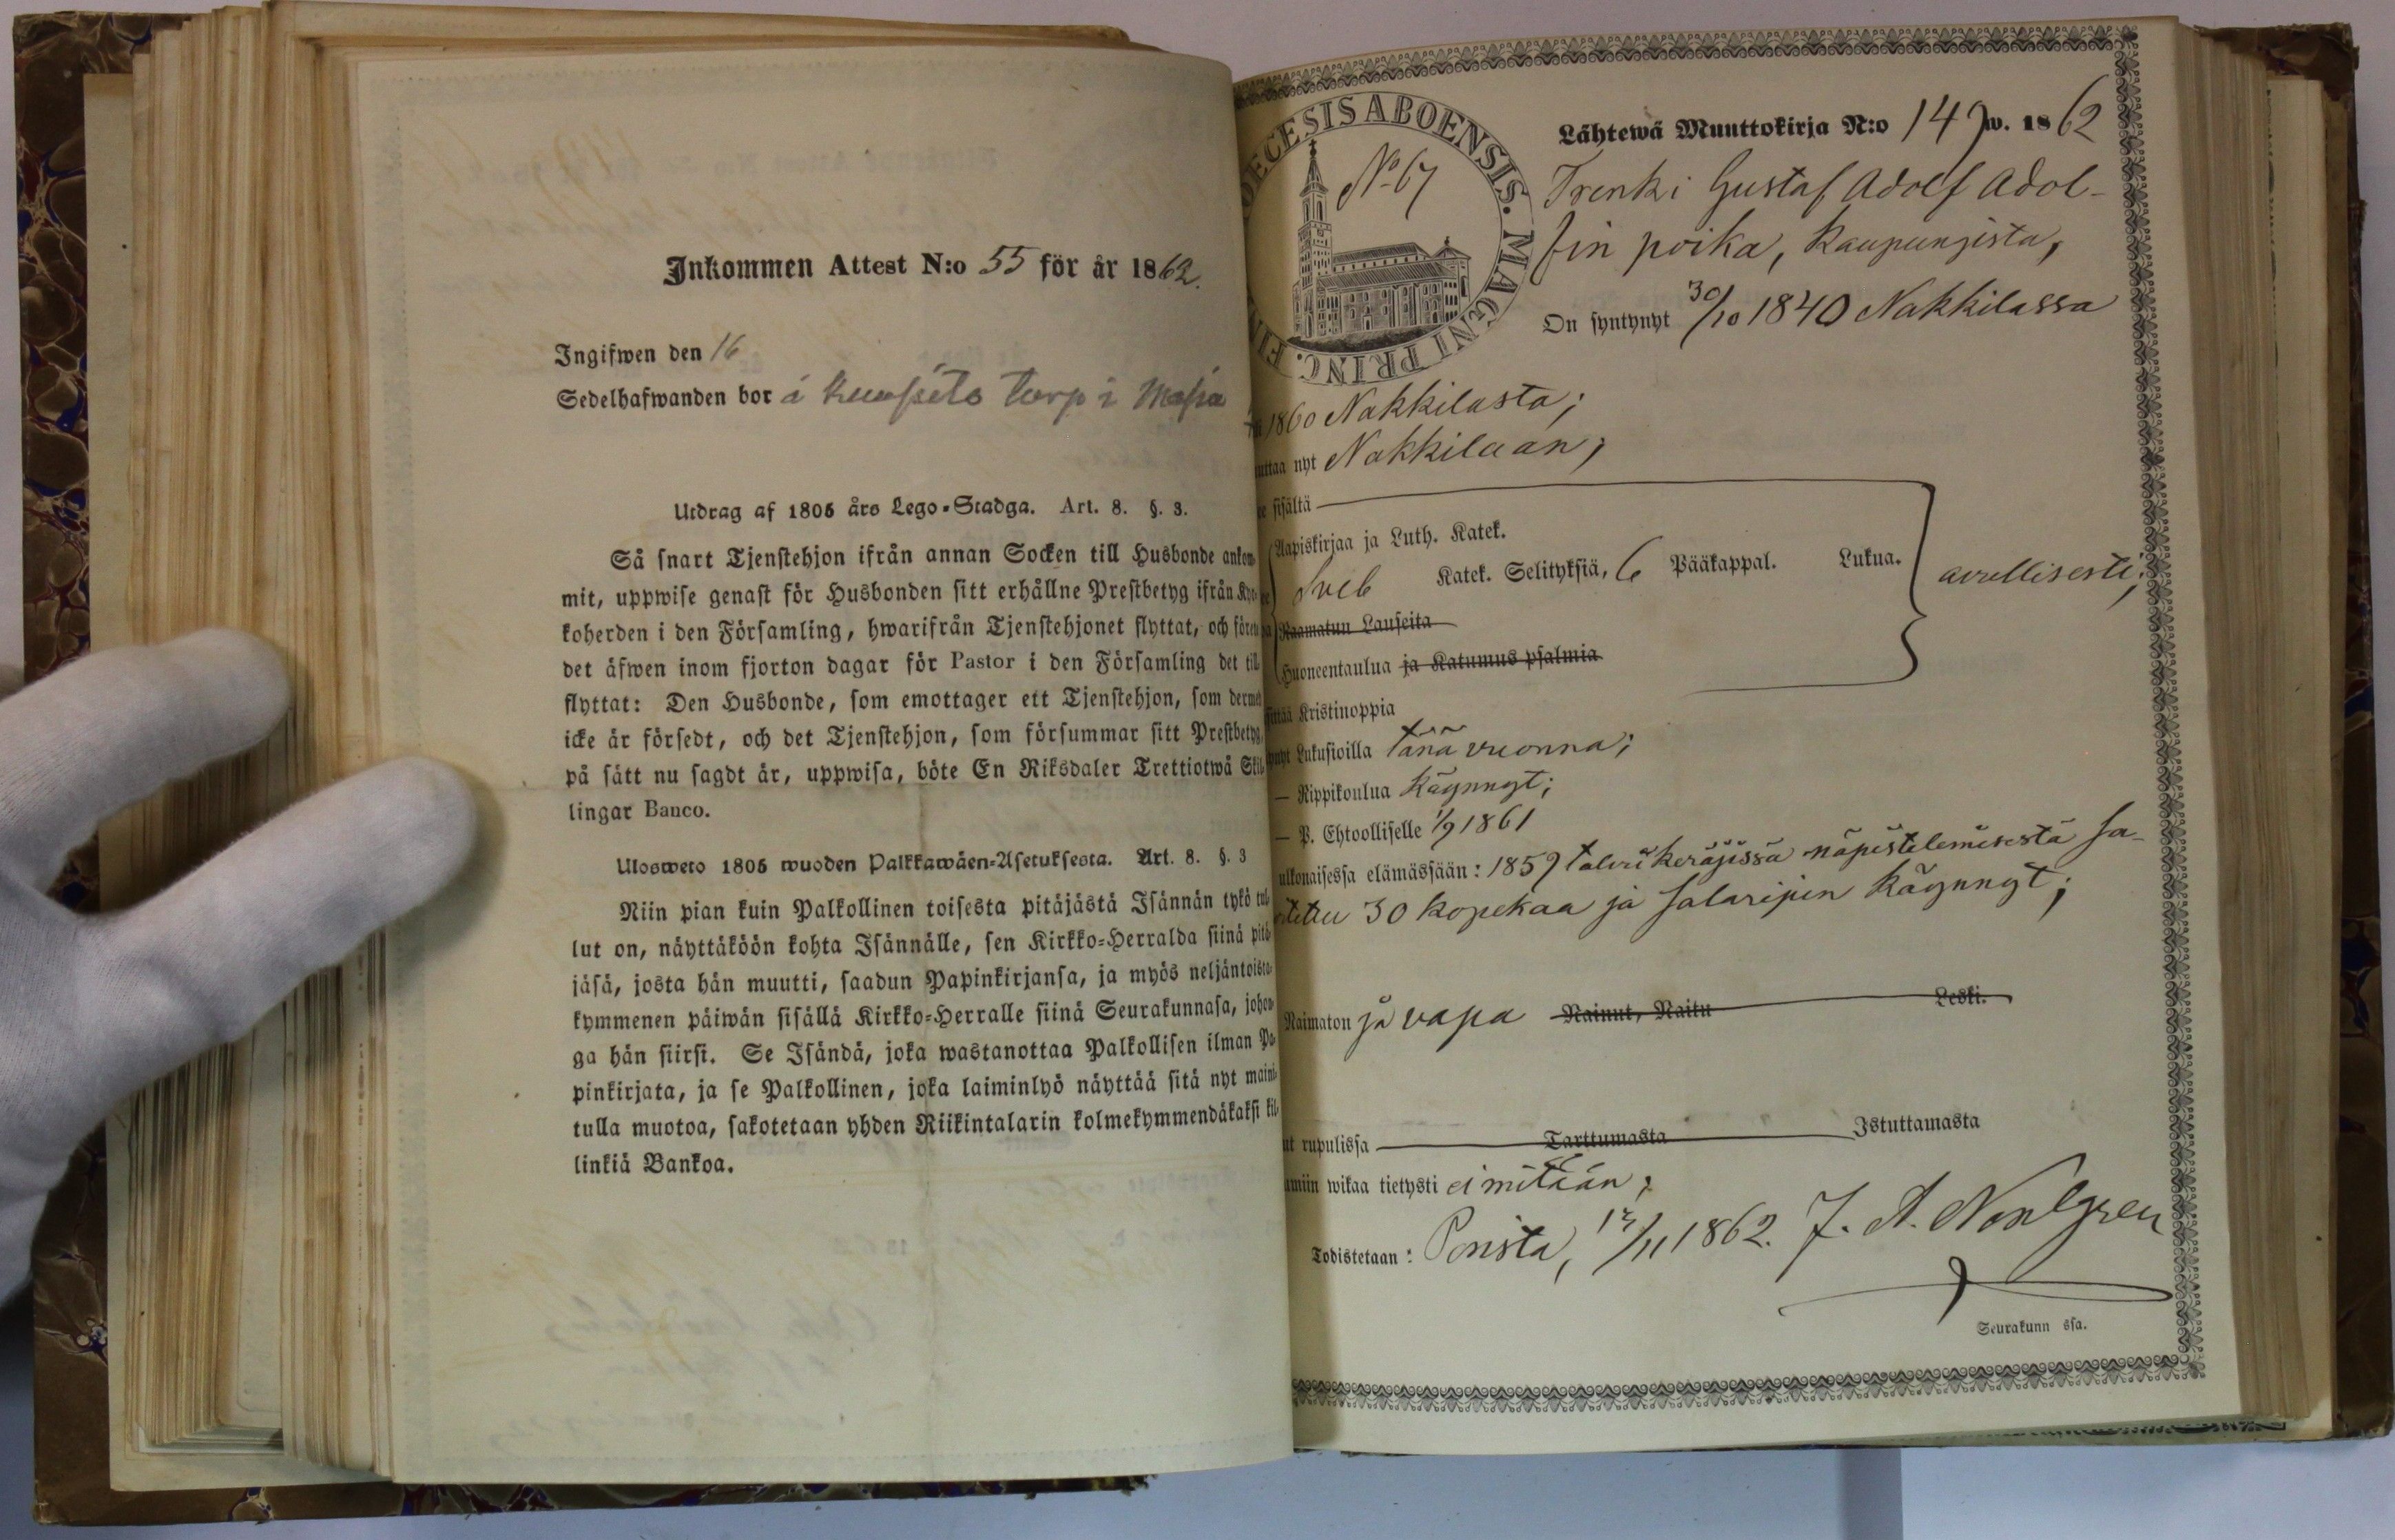 Inkommen Attest N:o 55 för år 1862.
Ingifwen den 16
Sedelhafwanden bor å torp i
Utdrag af 1805 års Lego-Stadga. Art. 8. §. 3.
Så snart Tjenstehjon ifrån annan Socken till Husbonde ankom-
mit, uppwise genast för Husbonden sitt erhållne Prestbetyg ifrån Kyr-
koherden i den Församling, hwarifrån Tjenstehjonet flyttat, och förete
det äfwen inom fjorton dagar för Pastor i den Församling det till
flyttat: Den Husbonde, som emottager ett Tjenstehjon, som dermed
icke är försedt, och det Tjenstehjon, som försummar sitt Prestbetyg,
på sätt nu sagdt är, uppwisa, böte En Riksdaler Trettiotwå Skil-
lingar Banco.
Ulosweto 1805 wuoden Palkkawäen-Asetuksesta. Art. 8. §. 3
Niin pian kuin Palkollinen toisesta pitäjästä Isännän tykö tul-
lut on, näyttäköön kohta Isännälle, sen Kirkko-Herralda siinä pitä-
jäsä, josta hän muutti, saadun Papinkirjansa, ja myös neljäntoista-
kymmenen päiwän sisällä Kirkko-Herralle siinä Seurakunnasa, johon-
ga hän siirsi. Se Isändä, joka wastanottaa Palkollisen ilman Pa-
pinkirjata, ja se Palkollinen, joka laiminlyö näyttää sitä nyt maini-
tulla muotoa, sakotetaan yhden Riikintalarin kolmekymmendäkaksi kil-
linkiä Bankoa.
DIOECESIS ABOENSIS. MAGNI PRINC. FIN
No 67
Lähtewä Muuttokirja N:o 149 w. 1862
Trenki Gustaf Adolf Adol-
fin poika, Kaupungista,
On syntynyt 30/10 1840 Nakkilassa
1860 Nakkilasta;
uttaa nyt Nakkilaan;
sisältä
Aapiskirjaa ja Luth. Katek.
Sveb Katek. Selityksiä, 6 Pääkappal. Lukua. avullisesti;
Raamatun Lauseita
Huoneentaulua ja Katumus psalmia
Kristinoppia
Lukusioilla tänä vuonna;
— Rippikoulua käynnyt;
— P. Ehtoolliselle 1/9 1861
ulkonaisessa elämässään: 1859 talvikeräjissä näpistelemisestä sa-
30 kopekaa ja salaripin käynnyt;
Naimaton ja vapa Nainut, Naitu Leski.
rupulissa Tarttumasta Istuttamasta
wikaa tietysti ei mitään;
Todistetaan: Porista, 13/11 1862. J. A. Norlgren
Seurakunn ssa.